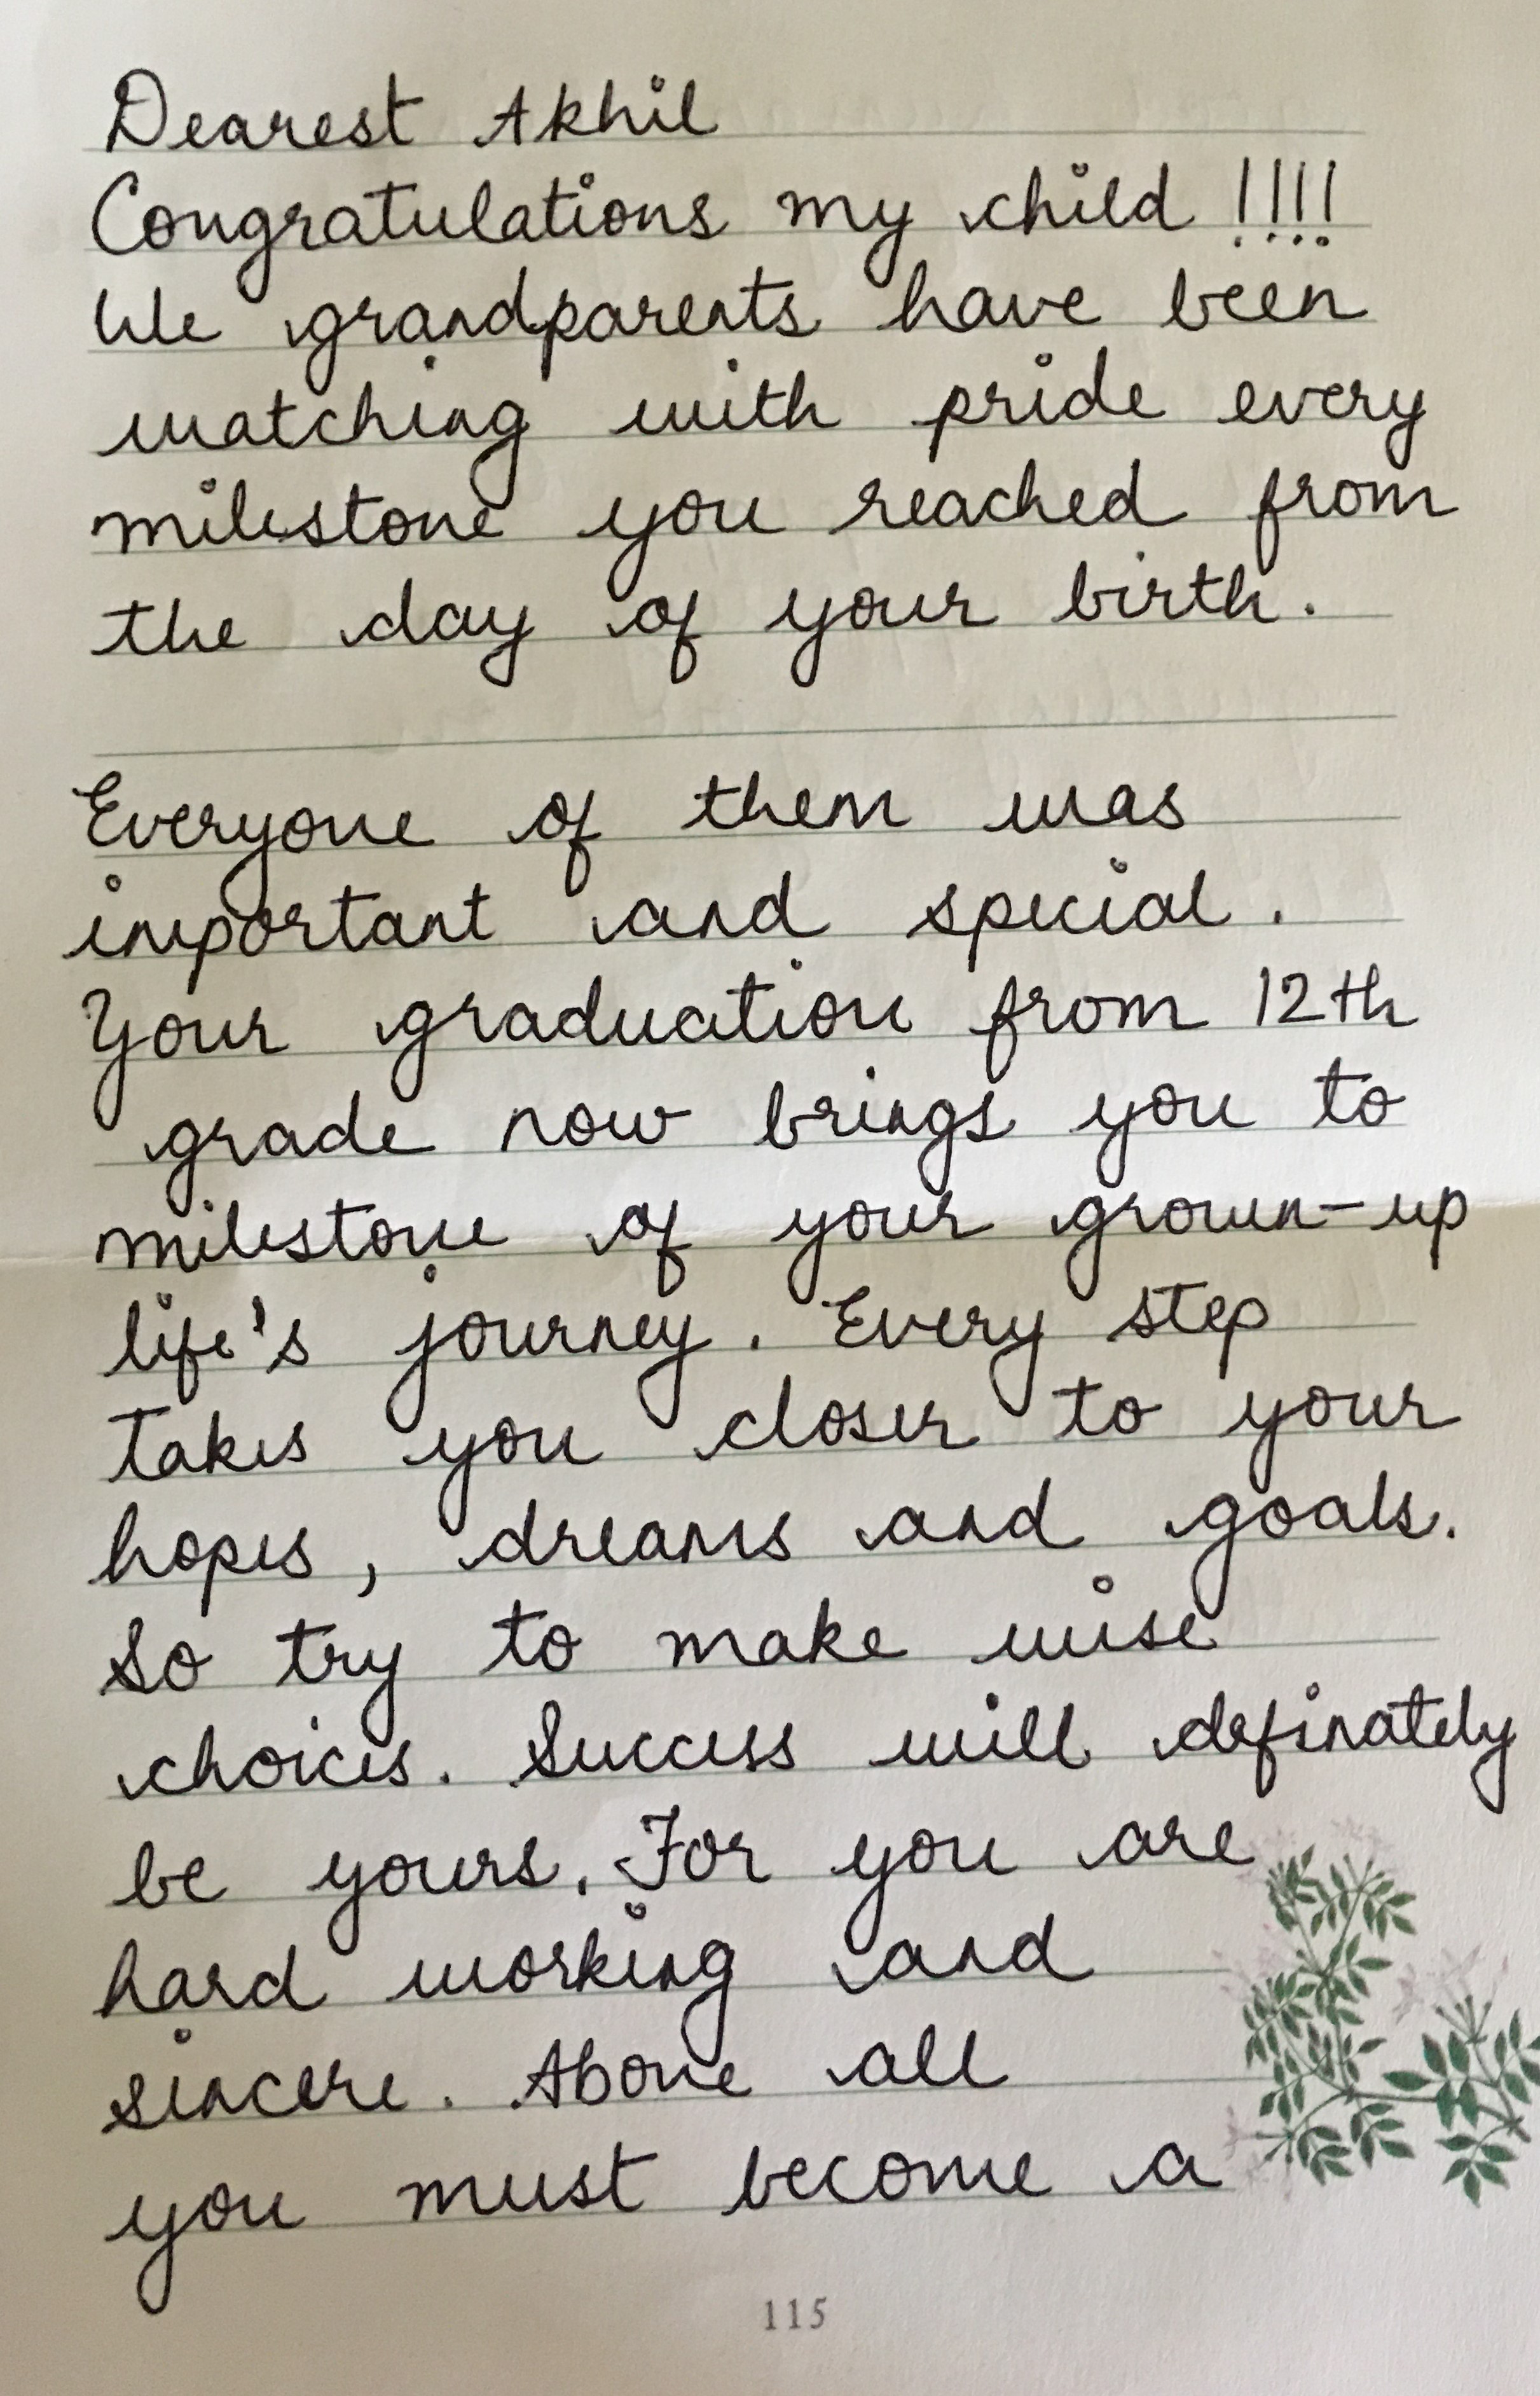 Dearest Akhil
Congratulations my child !!!!
We grandparents have been
watching with pride every
milestone you reached from
the day of your birth.
Everyone of them was
important and special.
Your graduation from 12th
grade now brings you to
milestone of your grown-up
life's journey. Every step
takes you closer to your
hopes, dreams and goals.
So try to make wise
choices. Success will definately
be yours. For you are
hard working and
sincere. Above all
you must become a
115